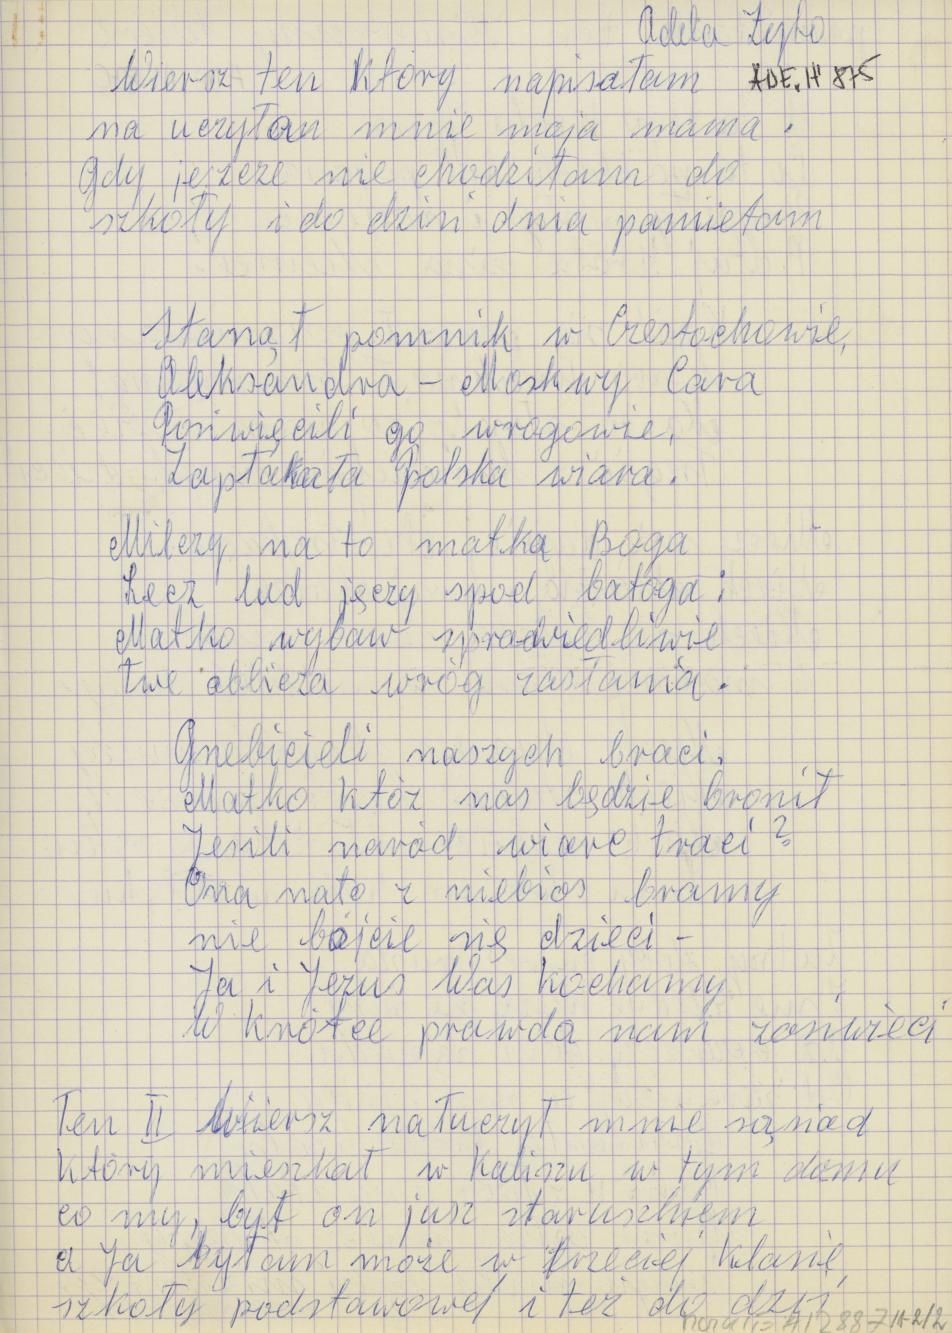 Adela Łepko
Wiersz ten który napisałam ADE. H 875
na uczyłan mnie moja mama.
Gdy jeszcze nie chodziłam do
szkoły i do dziń dnia pamietam
Stanął pomnik w Czestochowie,
Aleksandra – Moskwy Cara
Poświęcili go wrogowie.
Zapłakała Polska wiara.
Milczy na to matka Boga
Lecz lud jęczy spod batoga:
Matko wybaw spradwiedliwie
twe oblicza wróg zasłania.
Gnebicieli naszych braci.
Matko któż nas będzie bronił
Jesili naród wiare traci?
Ona nato z niebios bramy
nie bójcie się dzieci –
Ja i Jezus Was kochamy
W krótce prawda nam zaświeci
Ten II Wiersz nałuczył mnie sąsiad
który mieszkał w Kaliszu w tym domu
co my, był on jusz staruszkiem
a Ja byłam może w trzeciej klasie
szkoły podstawowej i też do dziś